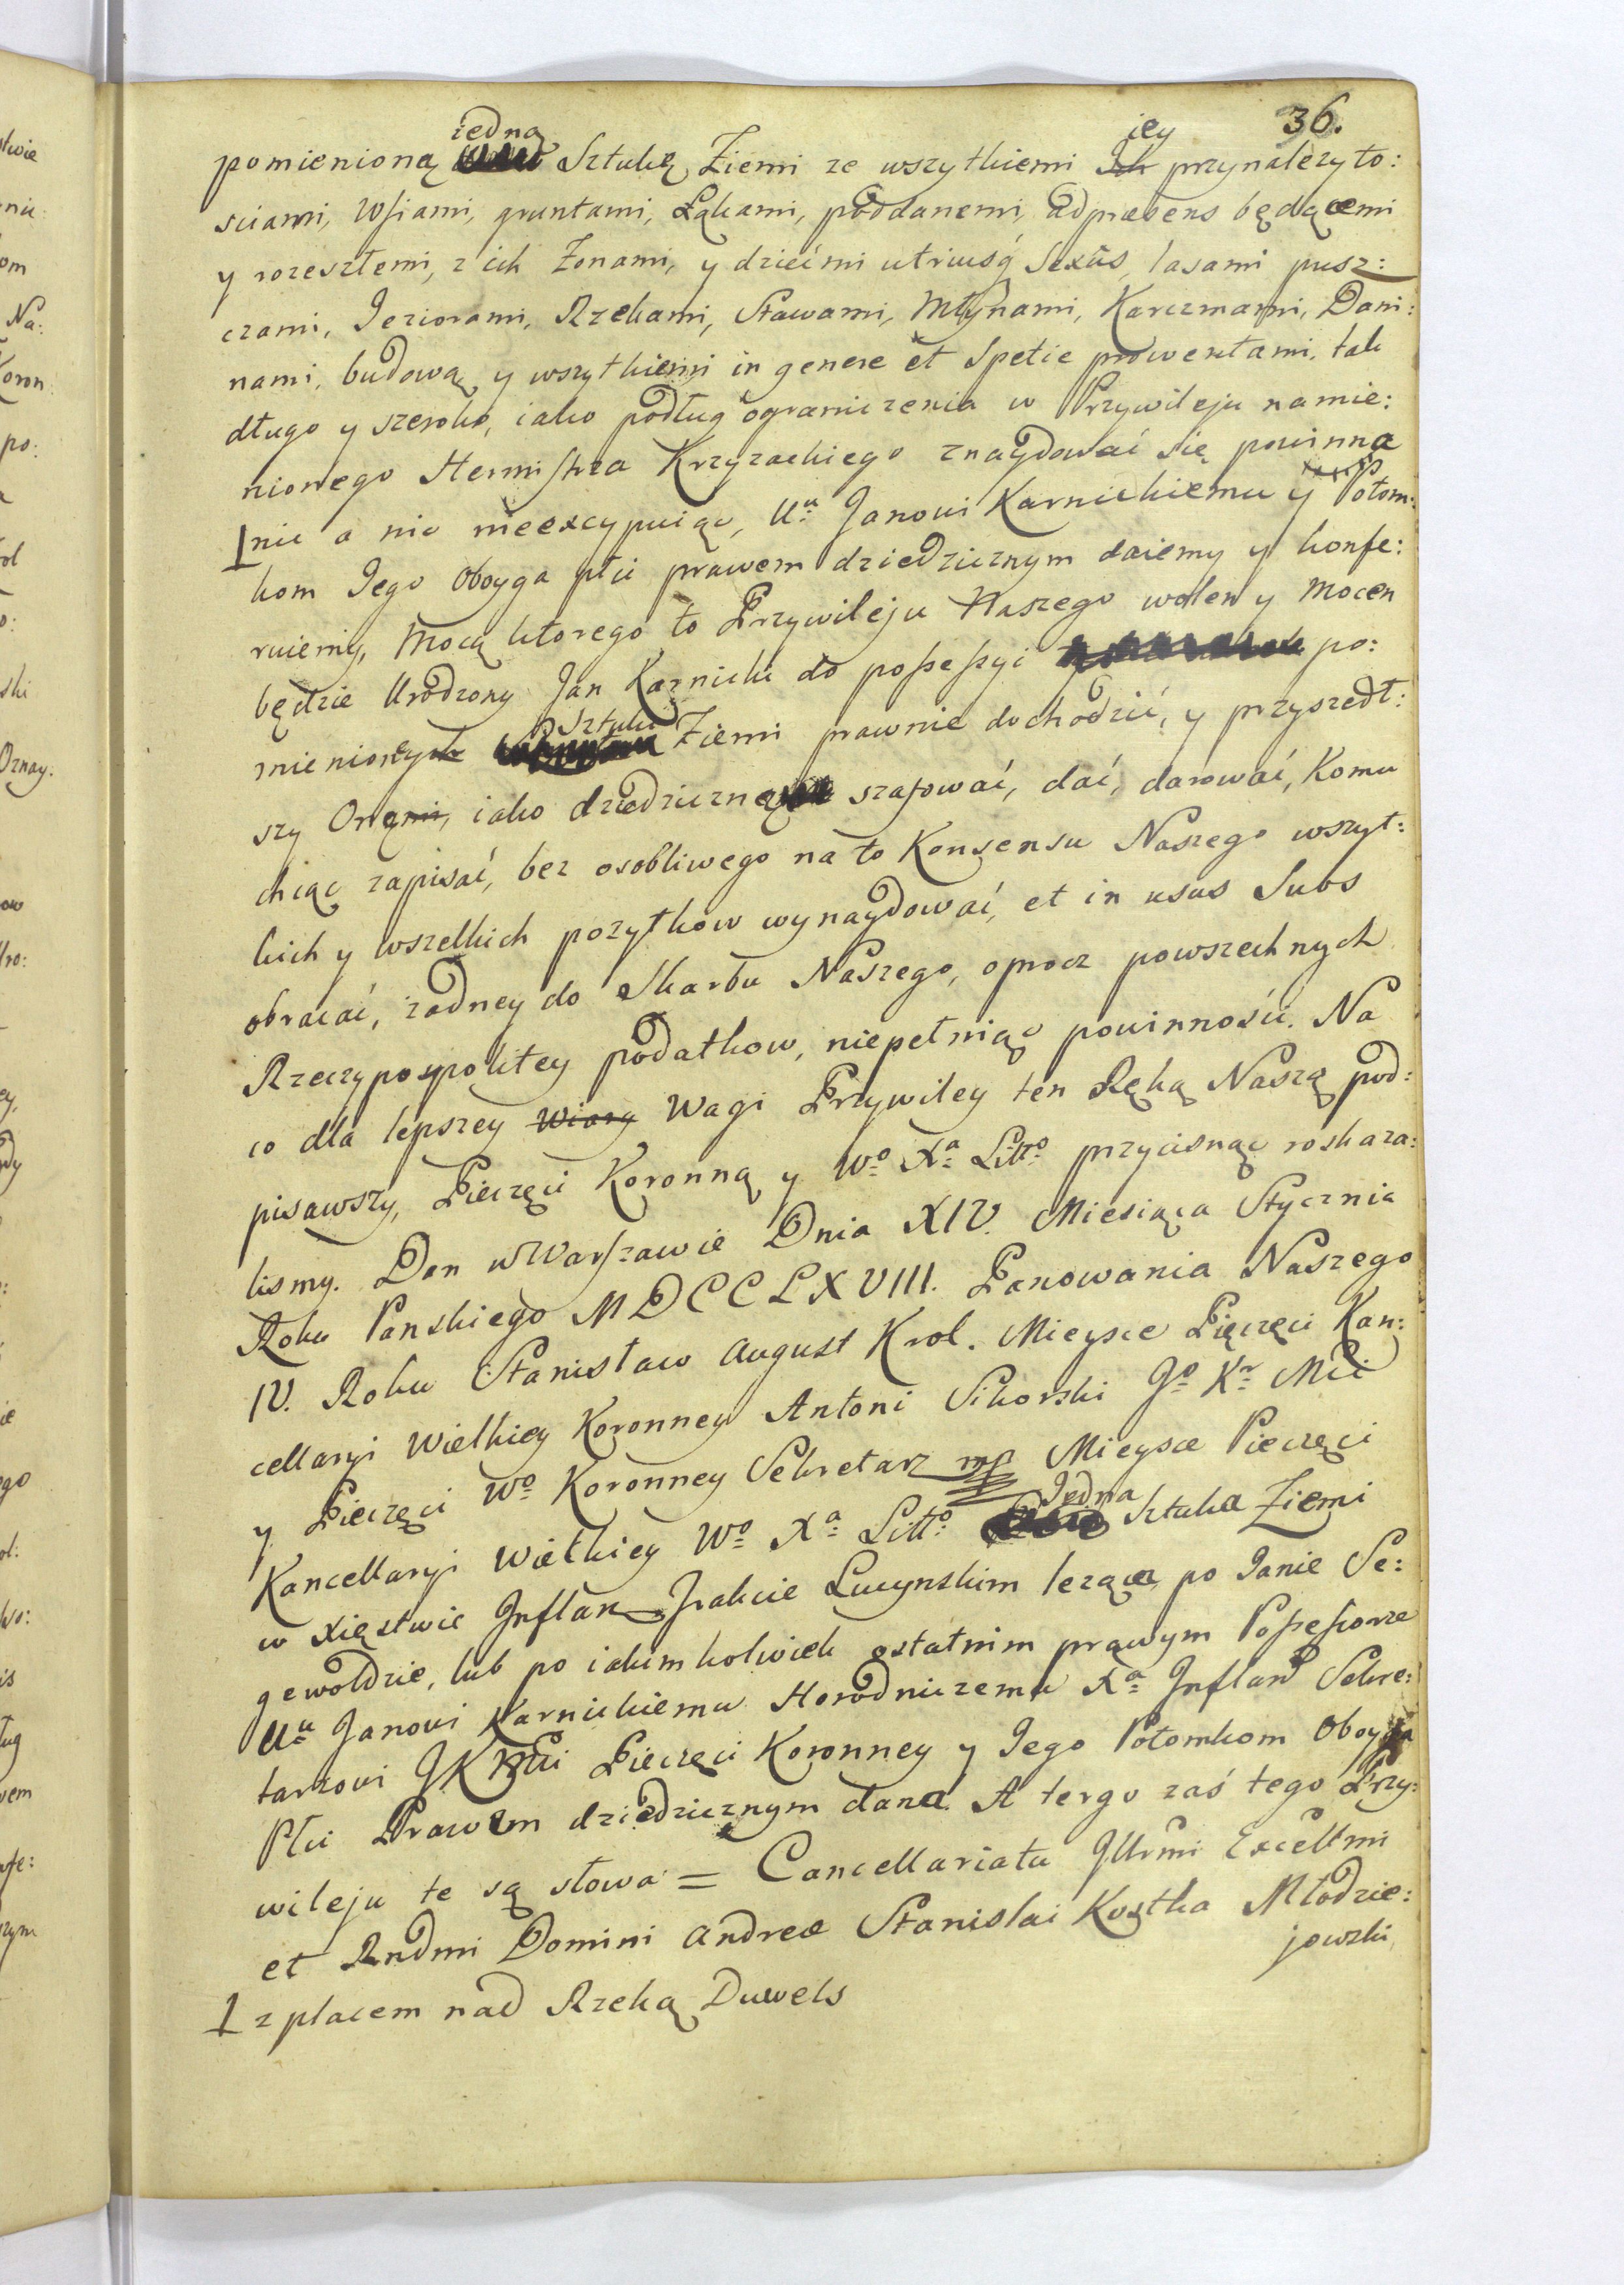 36.
pomienioną iedną Sztukę Ziemi ze wszytkiemi Ich iey przynalezyto:
sciami, Wsiami, gruntami, Łąkami, poddanemi, adpraesens będącemi
y rozeszłemi, z ich Zonami, y dziećmi utriusq́ Sexûs, lasami pusz:
czami, Jeziorami, Rzekami, Stawami, Młynami, Karczmami, Dani:
nami, budową y wszytkiemi in genere et Spetie prowentami, tak
długo y szeroko, iako podług ograniczenia w Przywileju namie:
nionego Hermistrza Krzyzackiego znaydować się powinna
⊥ nic a nic nieexcypuiąc, Uu Janowi Karnickiemu y Potom:
kom Jego Oboyga płci prawem dziedzicznym daiemy y konfe:
ruiemy, Mocą ktorego to Przywileju Naszego wolen y Mocen
będzie Urodzony Jan Karnicki do possessyi po:
mienioney Sztuki Ziemi prawnie dochodzić, y przyszedł:
szy Onęmi, iako dziedziczną szafować, dać, darować, Komu
chcąc zapisać, bez osobliwego na to Konsensu Naszego wszyt:
kich y wszelkich pozytkow wynaydować, et in usus Suos
obracać, zadney do Skarbu Naszego, oprocz powszechnych
Rzeczypospolitey podatkow, niepełniąc powinności. Na
co dla lepszey Wiary Wagi Przywiley ten Ręką Naszą pod:
pisawszy, Pieczęci Koronną y Wo Xa Litto przycisnąc roskaza:
lismy. Dan w Warszawie Dnia XIV. Miesiąca Stycznia
Roku Panskiego MDCCLXVIII. Panowania Naszego
IV. Roku Stanisław August Krol. Mieysce Pieczęci Kan:
cellaryi Wielkiey Koronney Antoni Sikorski Jo Kr Mci
y Pieczęci Wo Koronney Sekretarz mp Mieysce Pieczęci
Kancellaryi Wielkiey Wo Xa Litto Jedna Sztuka Ziemi
w Xięstwie Inflan Trakcie Lucynskim leząca, po Janie Se:
gewoldzie, lub po iakimkolwiek ostatnim prawym Possessorze
Uu Janowi Karnickiemu Horodniczemu Xa Inflan Sekre:
tarzowi JKMci Pieczęci Koronney y Jego Potomkom Oboyga
Płci Prawem dziedzicznym dana. A tergo zaś tego Przy:
wileju te są słowa = Cancellariatu Illrmi Excellmi
et Rndmi Domini Andreæ Stanislai Kostka Młodzie:
jowski
⊥ z placem nad Rzeką Duwels